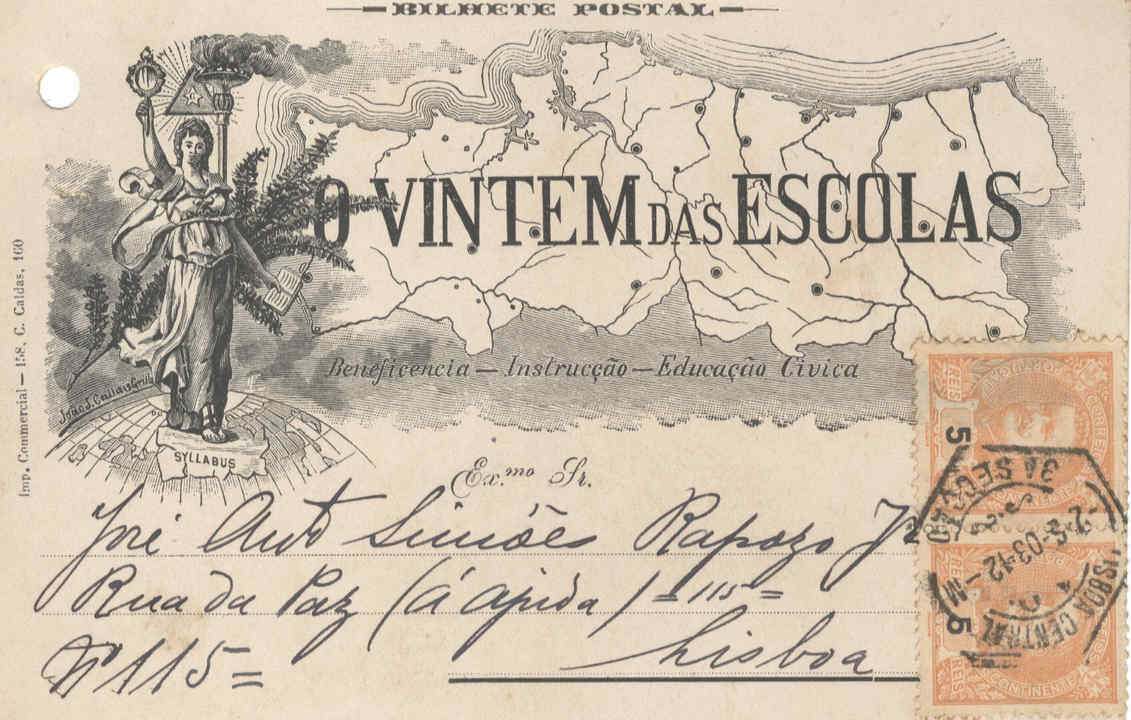 BILHETE POSTAL
O VINTEM DAS ESCOLAS
Beneficencia — Instrucção — Educação Civica
Imp. Commercial — 158, C. Caldas, 160
SYLLABUS
Ex.mo Sr.
José Anto Simões Rapozo Jr
Rua da Paz (á ajuda) = 115 =
Nº 115 =
Lisboa
CORREIOS
REIS
5
3A SECÇÃO
LISBOA CENTRAL
5
REIS
CONTINENTE